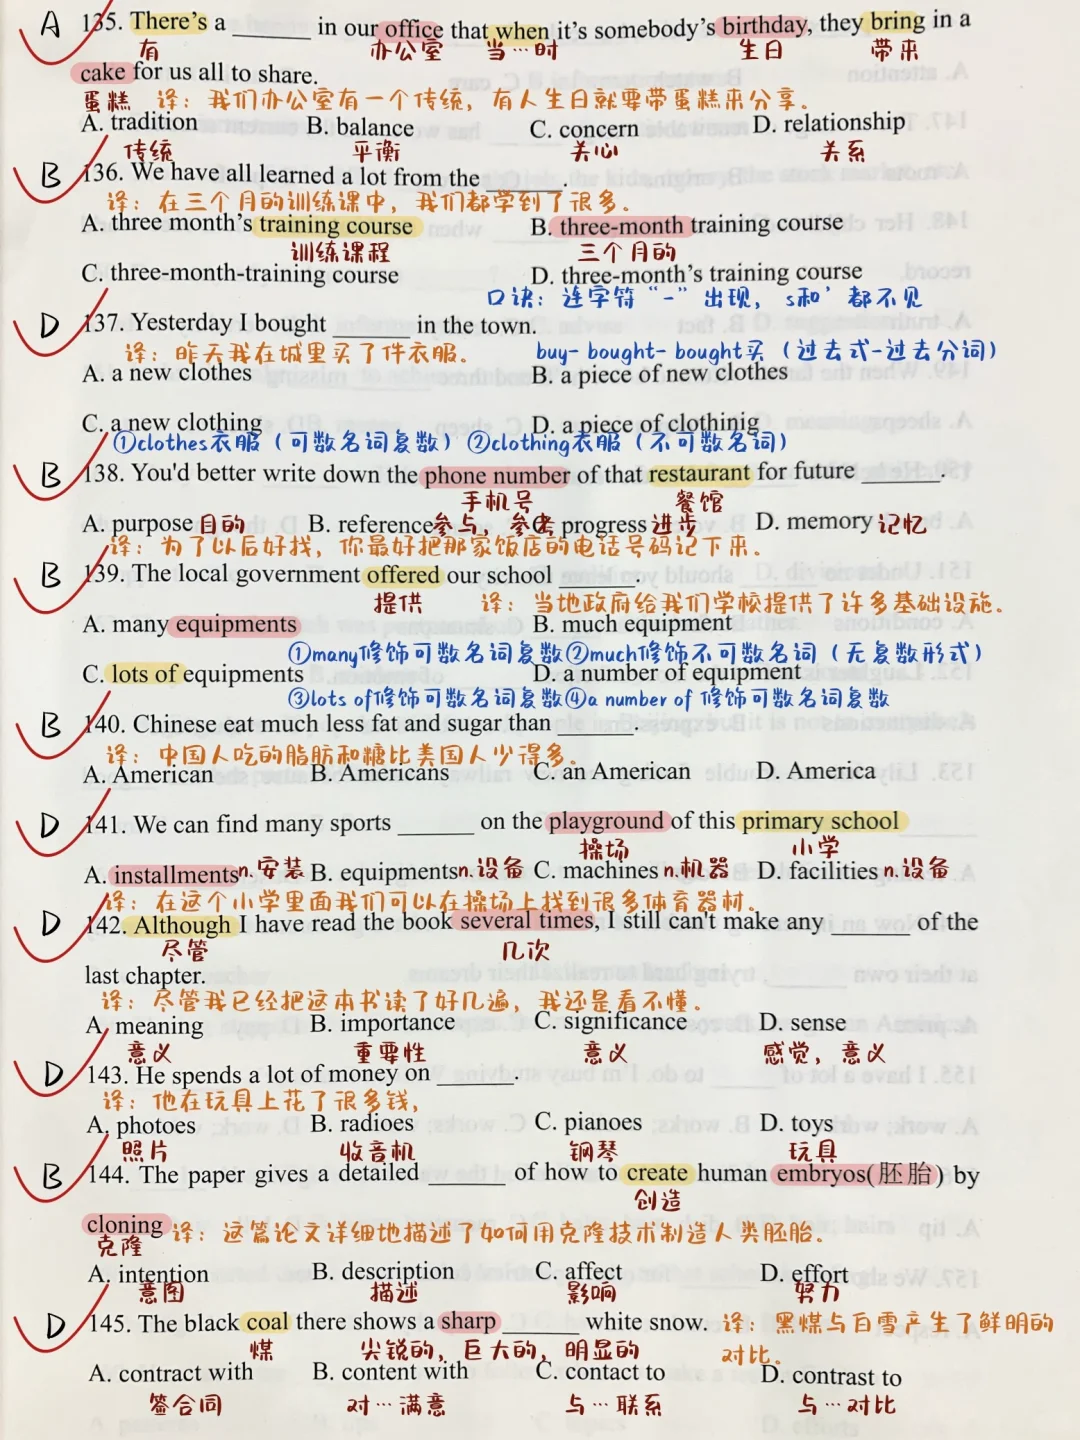 A 135. There's a ______ in our office that when it's somebody's birthday, they bring in a
有 办公室 当…时 生日 带来
cake for us all to share.
蛋糕 译：我们办公室有一个传统，有人生日就要带蛋糕来分享。
A. tradition B. balance C. concern D. relationship
传统 平衡 关心 关系
B 136. We have all learned a lot from the ______.
译：在三个月的训练课中，我们都学到了很多。
A. three month's training course B. three-month training course
训练课程 三个月的
C. three-month-training course D. three-month's training course
口诀：连字符“-”出现，s和'都不见
D 137. Yesterday I bought ______ in the town.
译：昨天我在城里买了件衣服。 buy-bought-bought买（过去式-过去分词）
A. a new clothes B. a piece of new clothes
C. a new clothing D. a piece of clothinig
①clothes衣服（可数名词复数）②clothing衣服（不可数名词）
B 138. You'd better write down the phone number of that restaurant for future ______.
手机号 餐馆
A. purpose目的 B. reference参与，参考 progress进步 D. memory记忆
译：为了以后好找，你最好把那家饭店的电话号码记下来。
B 139. The local government offered our school ______.
提供 译：当地政府给我们学校提供了许多基础设施。
A. many equipments B. much equipment
①many修饰可数名词复数②much修饰不可数名词（无复数形式）
C. lots of equipments D. a number of equipment
③lots of修饰可数名词复数④a number of 修饰可数名词复数
B 140. Chinese eat much less fat and sugar than ______.
译：中国人吃的脂肪和糖比美国人少得多。
A. American B. Americans C. an American D. America
D 141. We can find many sports ______ on the playground of this primary school
操场 小学
A. installmentsn.安装 B. equipmentsn.设备 C. machines n.机器 D. facilities n.设备
译：在这个小学里面我们可以在操场上找到很多体育器材。
D 142. Although I have read the book several times, I still can't make any ______ of the
尽管 几次
last chapter.
译：尽管我已经把这本书读了好几遍，我还是看不懂。
A. meaning B. importance C. significance D. sense
意义 重要性 意义 感觉，意义
D 143. He spends a lot of money on ______.
译：他在玩具上花了很多钱，
A. photoes B. radioes C. pianoes D. toys
照片 收音机 钢琴 玩具
B 144. The paper gives a detailed ______ of how to create human embryos(胚胎) by
创造
cloning 译：这篇论文详细地描述了如何用克隆技术制造人类胚胎。
克隆
A. intention B. description C. affect D. effort
意图 描述 影响 努力
D 145. The black coal there shows a sharp ______ white snow. 译：黑煤与白雪产生了鲜明的
煤 尖锐的，巨大的，明显的 对比。
A. contract with B. content with C. contact to D. contrast to
签合同 对…满意 与…联系 与…对比